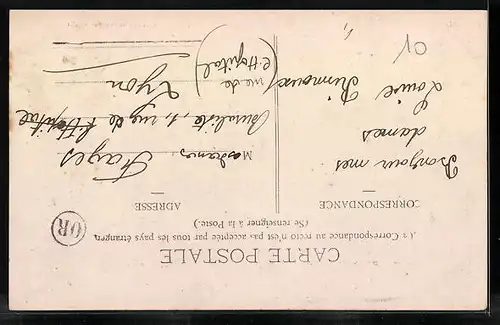 CARTE POSTALE
La Correspondance au recto n'est pas acceptée par tous les pays étrangers
(Se renseigner à la Poste.)
CORRESPONDANCE
Bonjour mes
dames
Louise
ADRESSE
OR
Madame Fayes
1, rue de l'Hopital
rue de
(l'Hopital)
Lyon